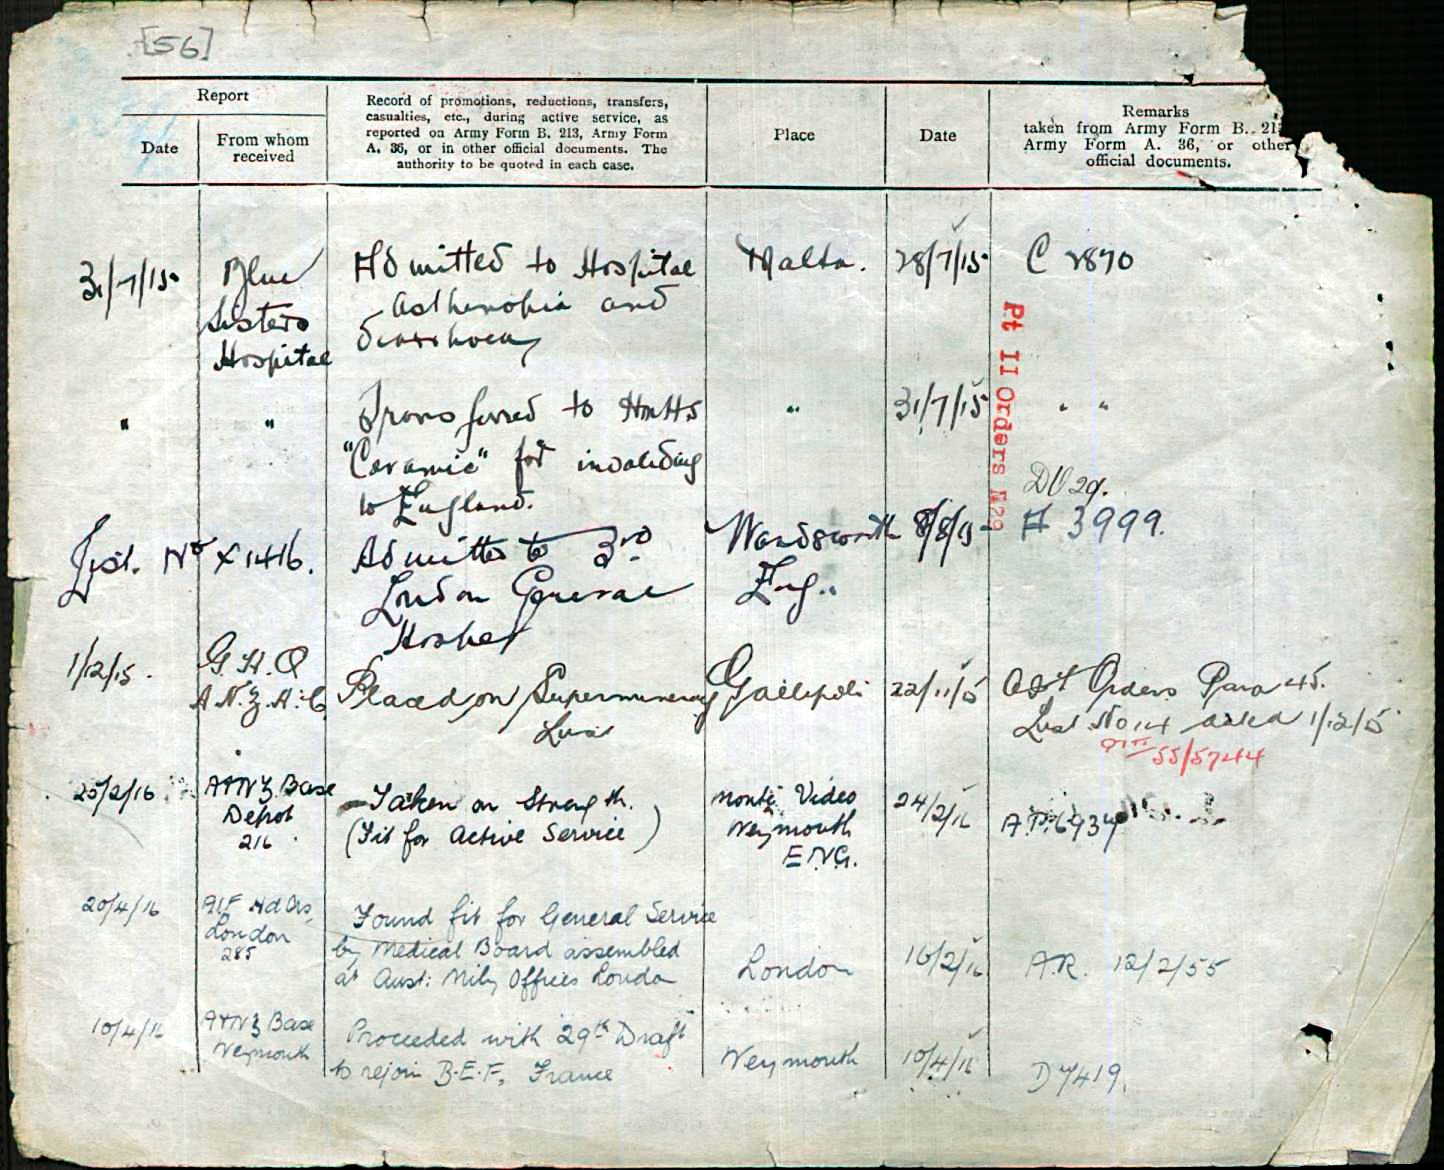 [56]
Report
Date
From whom
received
Record of promotions, reductions, transfers,
casualties, etc., during active service, as
reported on Army Form B. 213, Army Form
A. 36, or in other official documents. The
authority to be quoted in each case.
Place
Date
Remarks
taken from Army Form B. 213
Army Form A. 36, or other
official documents.
31/7/15 Blue Admitted to Hospital Malta. 28/7/15 C 2870
Sisters asthenopia and
Hospital diarrhoea
" " Transferred to HMHS " 31/7/15 " "
"Ceramic" for invaliding
to England.
Pt II Orders
DO 29.
List. No X 1416. Admitted to 3rd Wandsworth 8/8/15 A 3999.
London General Eng.
1/12/15. G.H.Q Placed on Supernumerary Gallipoli 22/11/15 Orders Para 45.
A.N.Z.A.C List
List No 14 dated 1/12/15
55/5744
25/2/16 A&NZ Base Taken on Strength. Monte Video 24/2/16
Depot (Fit for Active Service) Weymouth
216 ENG.
20/4/16 AIF Hd Qrs, Found fit for General Service
London by Medical Board assembled
285 at Aust: Mily Offices London London 16/2/16 A.R. 12/2/55
10/4/16 A&NZ Base Proceeded with 29th Draft
Weymouth to rejoin B.E.F, France Weymouth 10/4/16 D7419.